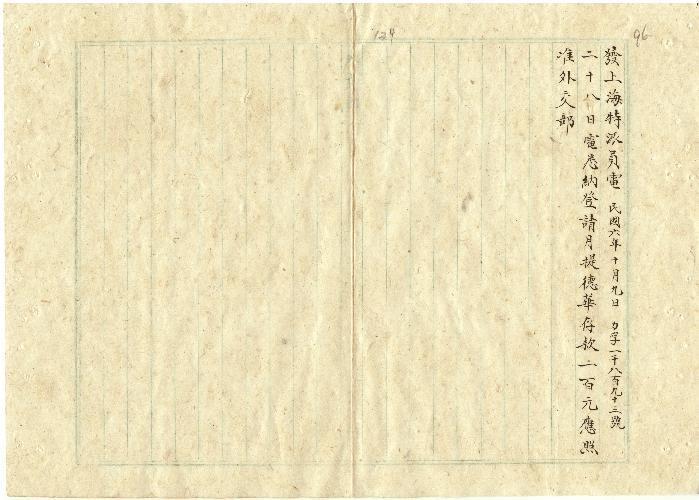 發上海特派員電 民國六年十月九日 力字一千八百九十三號
二十八日電悉納登請月提德華存款二百元應照
准外交部
96
124